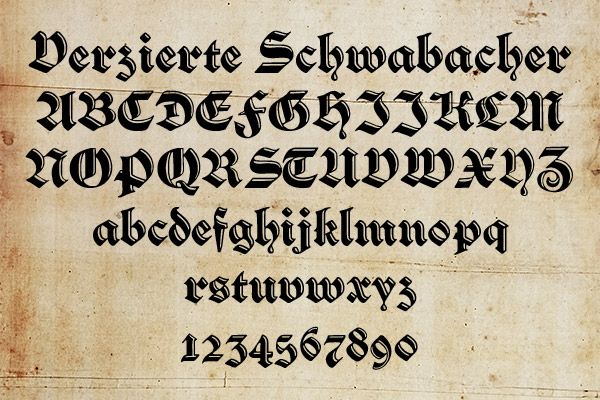 Verzierte Schwabacher
ABCDEFGHIJKLM
NOPQRSTUVWXYZ
abcdefghijklmnopq
rstuvwxyz
1234567890